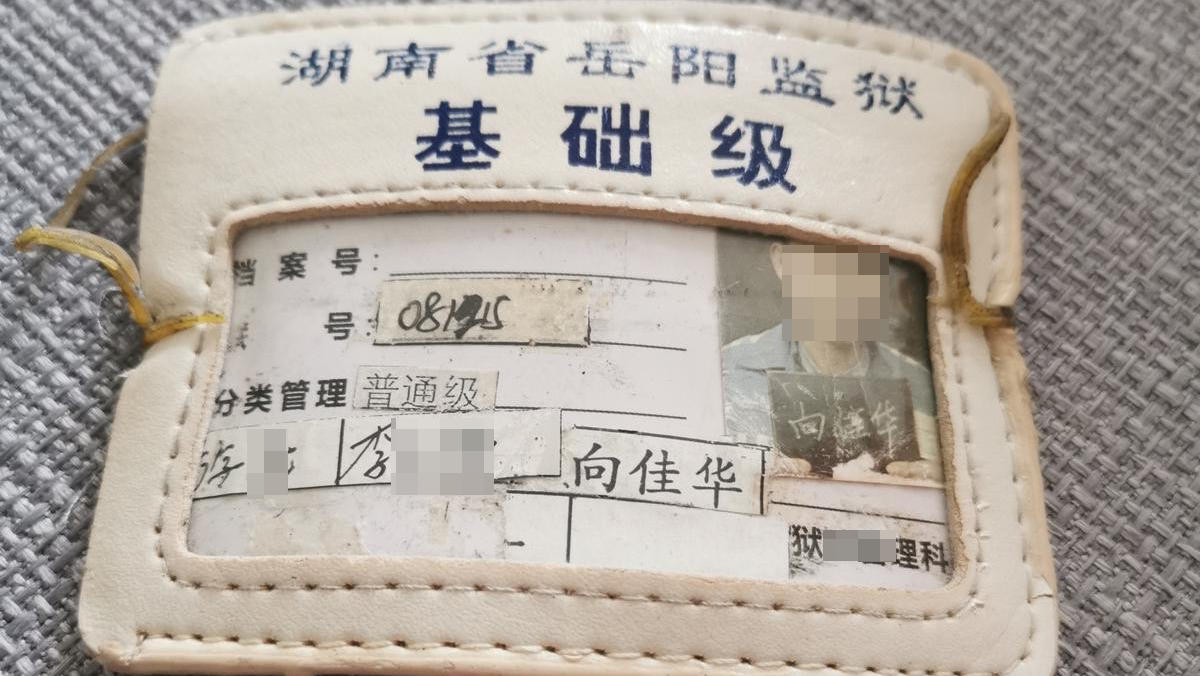 湖南省岳阳监狱
基础级
档案号：
号： 081
分类管理 普通级
李
向佳华
向佳华
狱 理科